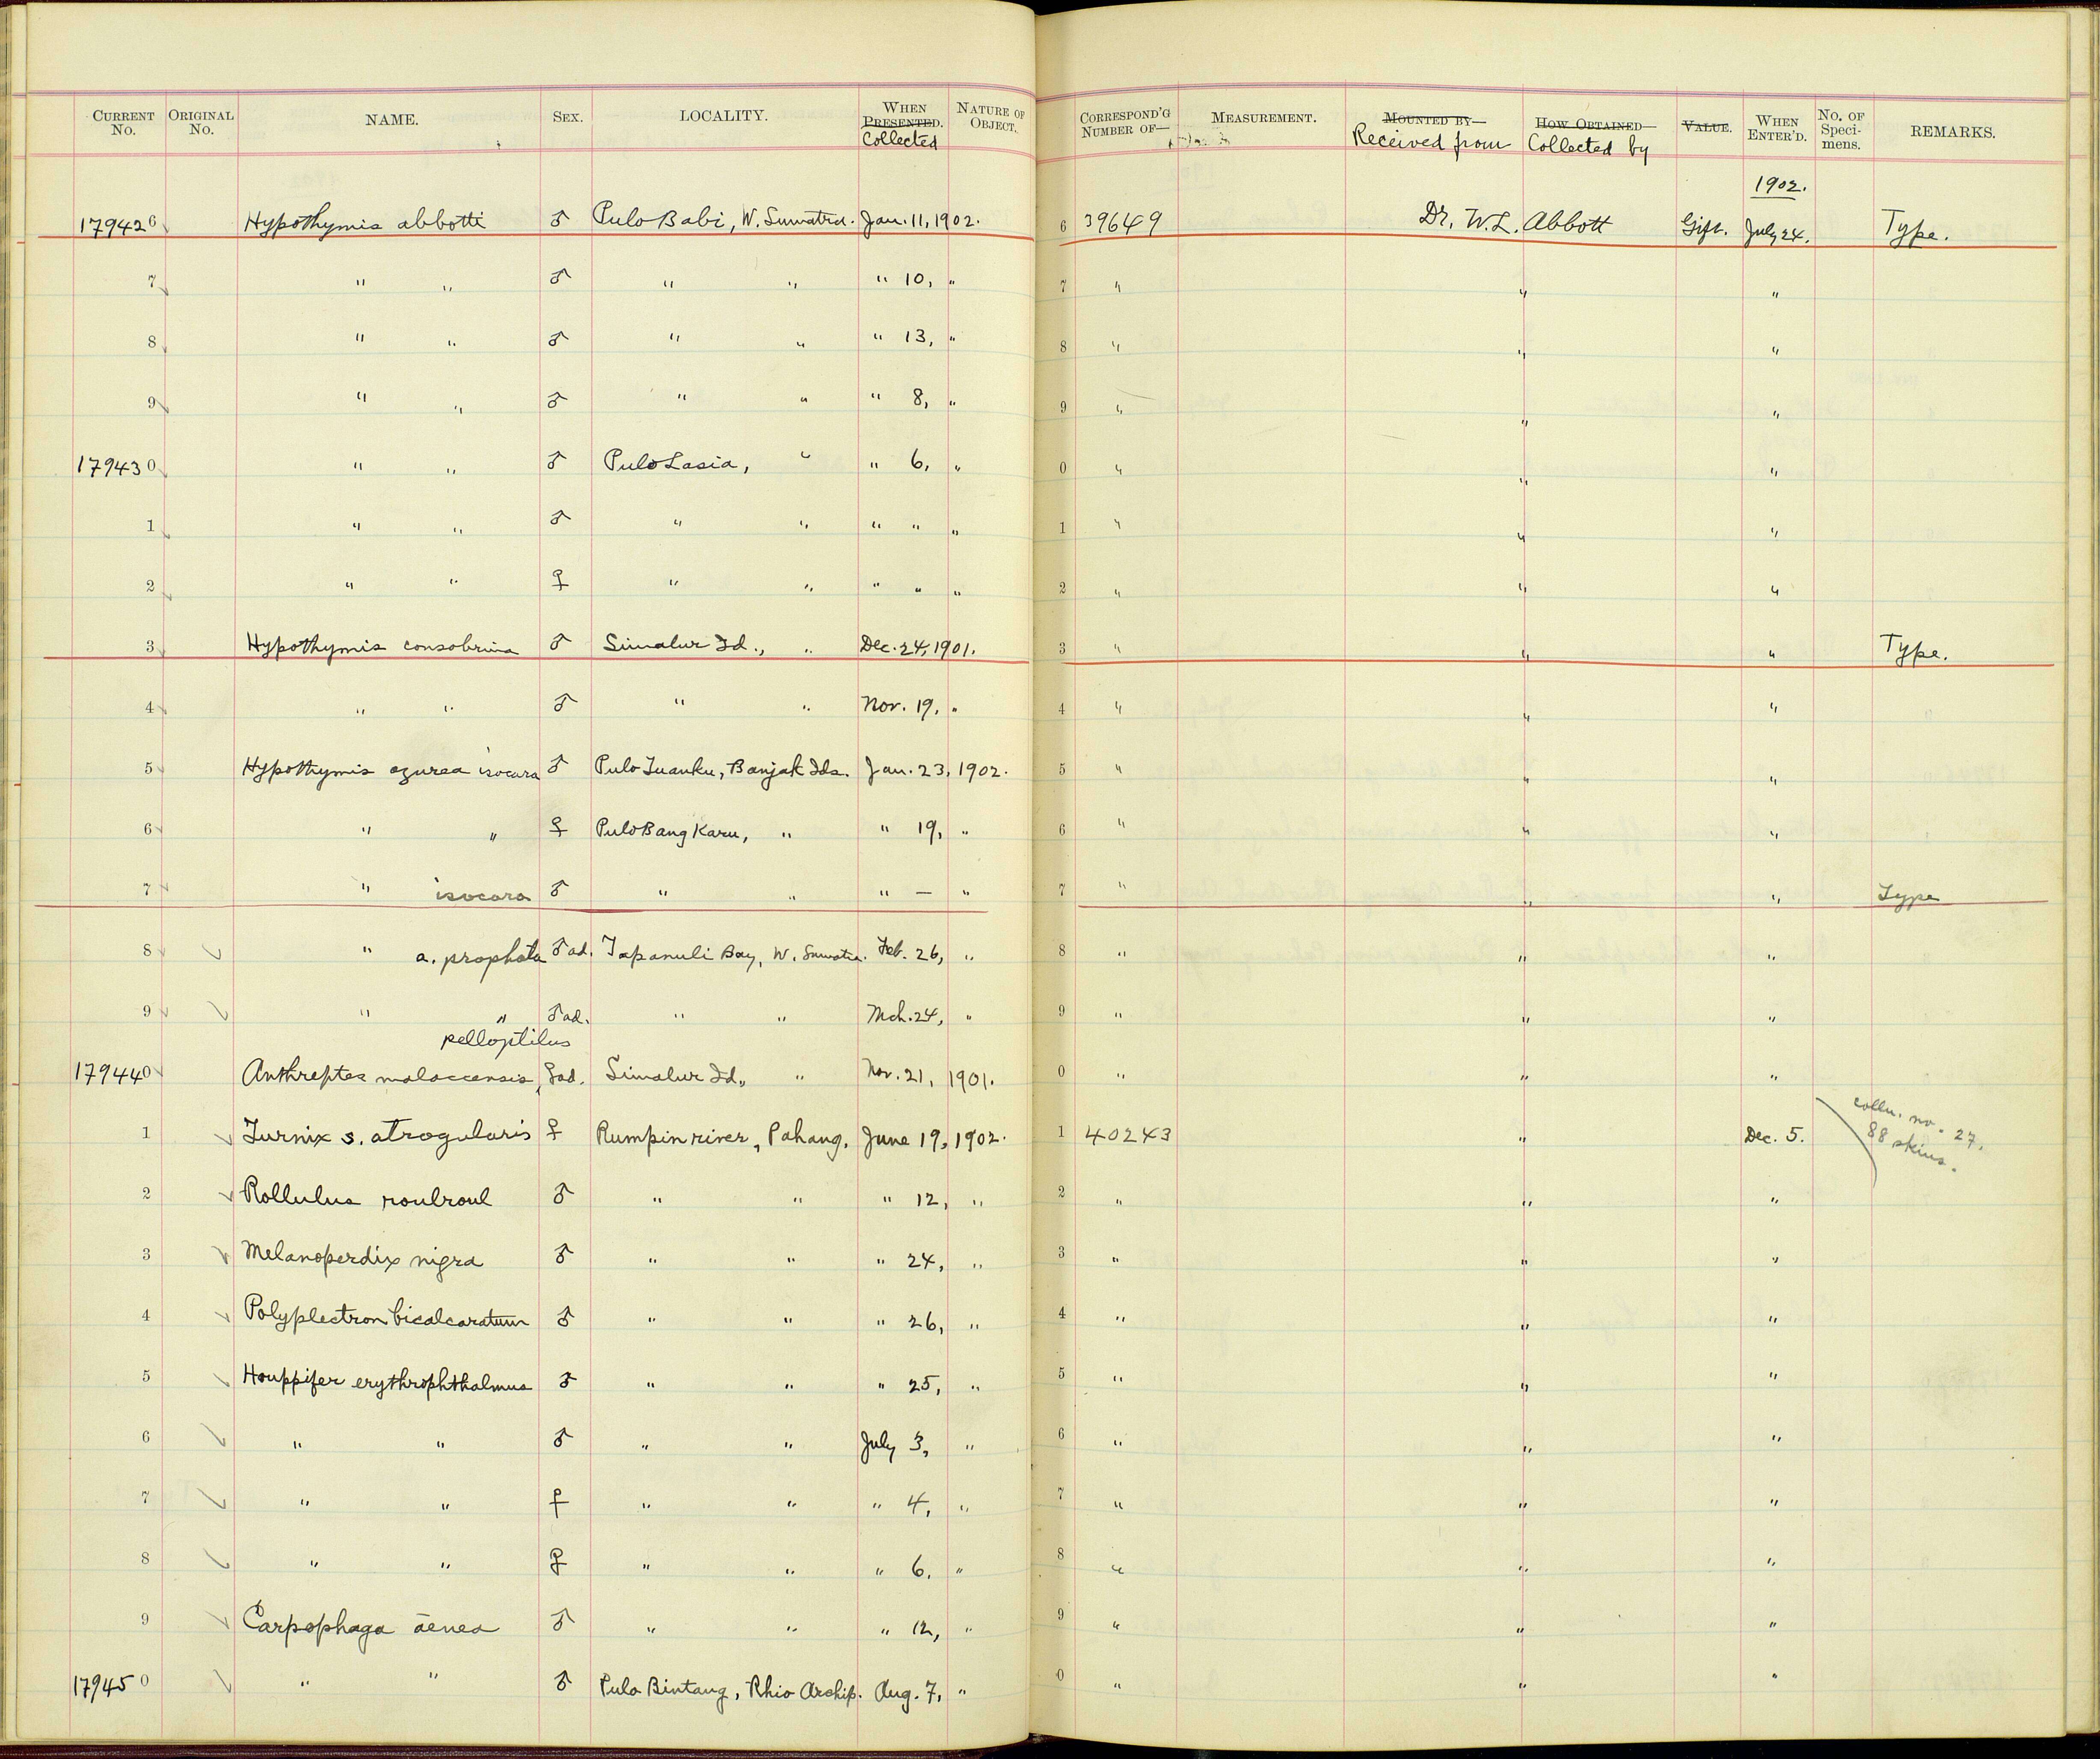 CURRENT No. ORIGINAL No. NAME. SEX. LOCALITY. WHEN PRESENTED. Collected NATURE OF OBJECT. CORRESPOND'G NUMBER OF— MEASUREMENT. MOUNTED BY— Received from HOW OBTAINED— Collected by VALUE. WHEN ENTER'D. No. OF Speci- mens. REMARKS.
1902.
179426 Hypothymis abbotti ♂ Pulo Babi, W. Sumatra. Jan. 11, 1902. 6 39649 Dr. W.L. Abbott Gift. July 24. Type.
7 " " ♂ " " " 10, " 7 " " "
8 " " ♂ " " " 13, " 8 " " "
9 " " ♂ " " " 8, " 9 " " "
179430 " " ♂ Pulo Lasia, " " 6, " 0 " " "
1 " " ♂ " " " " " 1 " " "
2 " " ♀ " " " " " 2 " " "
3 Hypothymis consobrina ♂ Simalur Id., " Dec. 24, 1901. 3 " " " Type.
4 " " ♂ " " Nov. 19, " 4 " " "
5 Hypothymis azurea isocara ♂ Pulo Tuanku, Banjak Ids. Jan. 23, 1902. 5 " " "
6 " " ♀ Pulo Bang Karu, " " 19, " 6 " " "
7 " isocara ♂ " " " — " 7 " " " Type
8 " a. prophata ♂ ad. Tapanuli Bay, W. Sumatra. Feb. 26, " 8 " " "
9 " " ♂ ad. " " Mch. 24, " 9 " " "
pelloptilus
179440 Anthreptes malaccensis, ♀ ad. Simalur Id., " Nov. 21, 1901. 0 " " "
1 Turnix s. atrogularis ♀ Rumpin river, Pahang. June 19, 1902. 1 40243 " Dec. 5. colln. no. 27. 88 skins.
2 Rollulus roulroul ♂ " " " 12, " 2 " " "
3 Melanoperdix nigra ♂ " " " 24, " 3 " " "
4 Polyplectron bicalcaratum ♂ " " " 26, " 4 " " "
5 Houppifer erythrophthalmus ♂ " " " 25, " 5 " " "
6 " " ♂ " " July 3, " 6 " " "
7 " " ♀ " " " 4, " 7 " " "
8 " " ♀ " " " 6. " 8 " " "
9 Carpophaga aenea ♂ " " " 12, " 9 " " "
179450 " " ♂ Pulo Bintang, Rhio Archip. Aug. 7, " 0 " " "